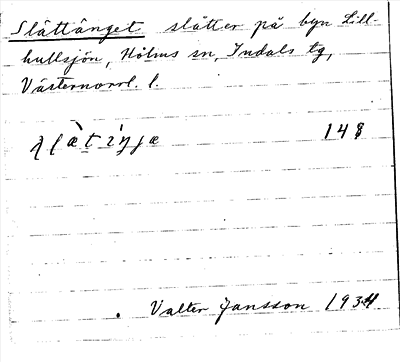 Slåttänget slåtter på byn Lill-
hullsjön, Holms sn, Indals tg,
Västernorrl. l.
148
Valter Jansson 1934